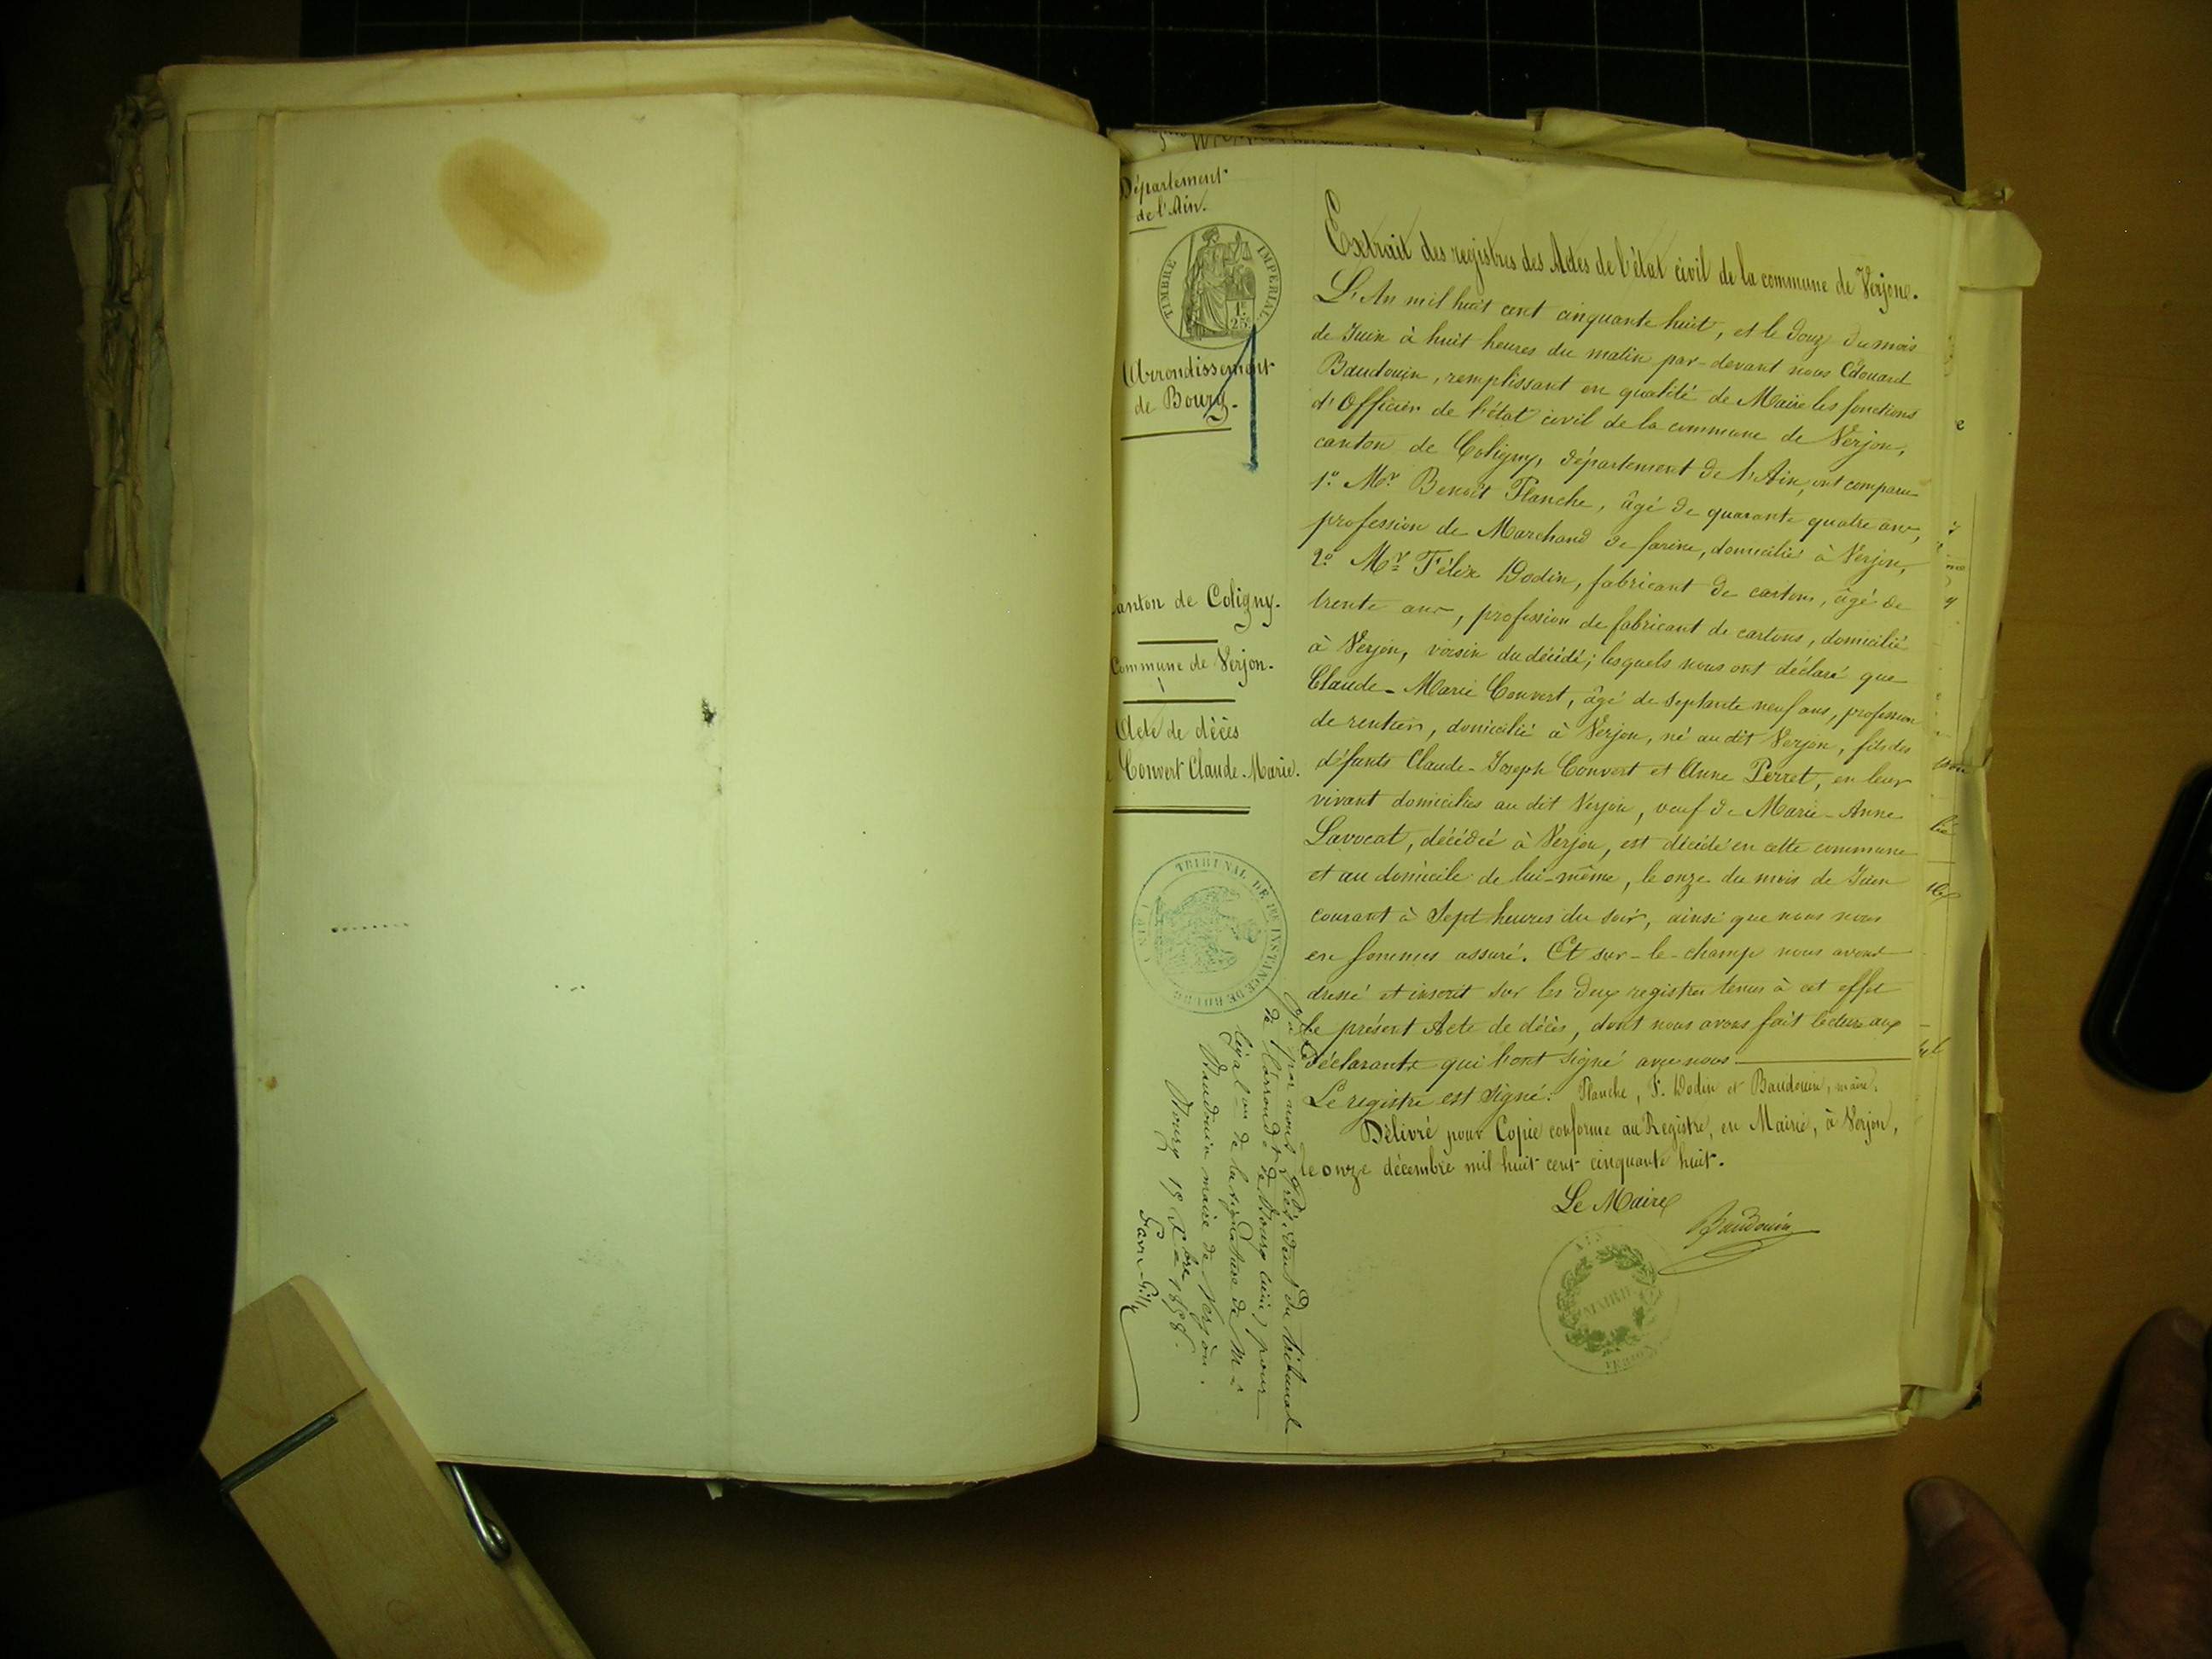 Département
de l'Ain.
TIMBRE IMPÉRIAL
1f. 25c
Arrondissement
de Bourg.
Canton de Coligny.
Commune de Verjon.
Acte de décès
Convert Claude-Marie.
TRIBUNAL DE 1RE INSTANCE DE BOURG (AIN)
Extrait des registres des Actes de l'état civil de la commune de Verjon.
L'An mil huit cent cinquante huit, et le douze du mois
de Juin à huit heures du matin par-devant nous Edouard
Baudouin, remplissant en qualité de Maire les fonctions
d'Officier de l'état civil de la commune de Verjon,
canton de Coligny, département de l'Ain, ont comparu
1º Mr Benoit Planche, âgé de quarante quatre ans,
profession de Marchand de farine, domicilié à Verjon,
2º Mr Félix Dodin, fabricant de cartons, âgé de
trente ans, profession de fabricant de cartons, domicilié
à Verjon, voisin du décédé; lesquels nous ont déclaré que
Claude-Marie Convert, âgé de septante neuf ans, profession
de rentier, domicilié à Verjon, né au dit Verjon, fils des
défunts Claude-Joseph Convert et Anne Perret, en leur
vivant domiciliés au dit Verjon, veuf de Marie-Anne
Lavocat, décédée à Verjon, est décédé en cette commune
et au domicile de lui-même, le onze du mois de Juin
courant à Sept heures du soir, ainsi que nous nous
en sommes assuré. Et sur-le-champ nous avons
dressé et inscrit sur les deux registres tenus à cet effet
le présent Acte de décès, dont nous avons fait lecture aux
déclarants qui l'ont signé avec nous
Le registre est signé: Planche, F. Dodin et Baudouin, maire.
Délivré pour Copie conforme au Registre, en Mairie, à Verjon,
le onze décembre mil huit cent cinquante huit.
Le Maire
Baudouin
MAIRIE
VERJON
AIN
Vu par nous Président du tribunal
de l'arrondt de Bourg (ain) pour
légalon de la signature de Mr
Baudouin maire de Verjon.
Bourg 15 Xbre 1858.